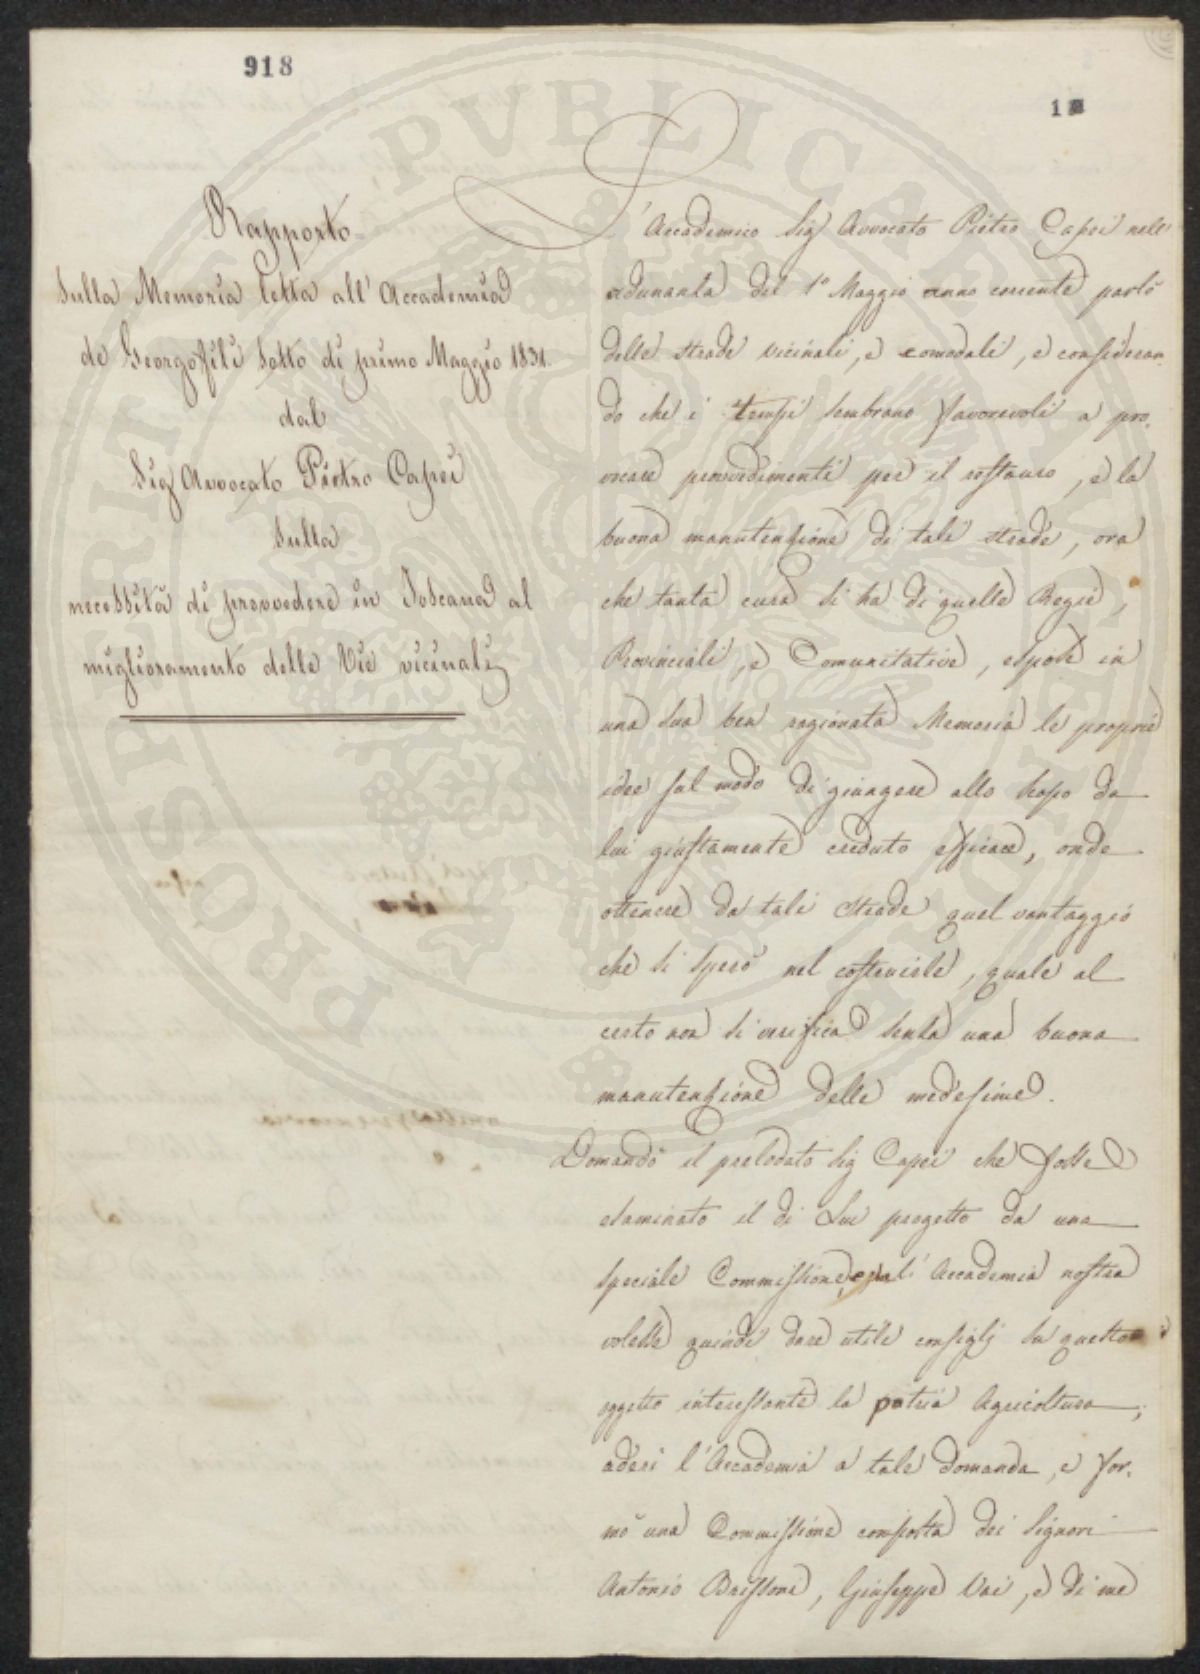 918
1
Rapporto
Sulla Memoria letta all' Accademia
de Georgofili sotto dì primo Maggio 1831.
dal
Sig Avvocato Pietro Capei
sulla
necessità di provvedere in Toscana al
miglioramento delle Vie vicinali
L'Accademico Sig Avvocato Pietro Capei nell'
adunanza del 1° Maggio anno corrente parlò
delle strade vicinali, e comodali, e consideran-
do che i tempi sembrano favorevoli a pro-
vocare provvedimenti per il restauro, e la
buona manutenzione di tali strade, ora
che tanta cura si ha di quelle Regie,
Provinciali, e Comunitative, espose in
una sua ben ragionata Memoria le proprie
idee sul modo di giungere allo scopo da
lui giustamente creduto efficace, onde
ottenere da tali strade quel vantaggio
che si sperò nel costruirle, quale al
certo non si verifica senza una buona
manutenzione delle medesime.
Domandò il prelodato Sig Capei che fosse
esaminato il di Lui progetto da una
speciale Commissione, e l'Accademia nostra
volesse quindi dare utili consigli su questo
oggetto interessante la patria Agricoltura;
aderì l'Accademia a tale domanda, e for-
mò una Commissione composta dei Signori
Antonio Brissoni, Giuseppe Vai, e di me
PROSPERITATI PVBLICAE AVGENDAE